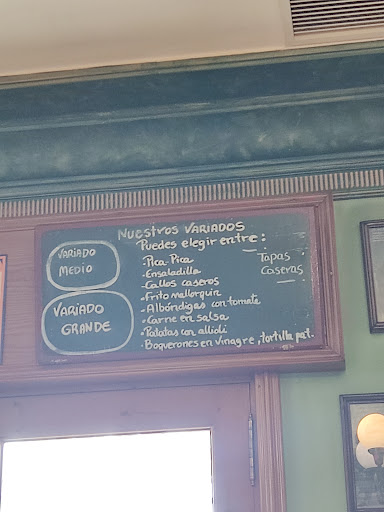 NUESTROS VARIADOS
Puedes elegir entre:
VARIADO
MEDIO
VARIADO
GRANDE
• Pica-Pica
• Ensaladilla
• Callos caseros
• Frito mallorquín
• Albóndigas con tomate
• Carne en salsa
• Patatas con allioli
• Boquerones en vinagre, tortilla pat.
Tapas
Caseras